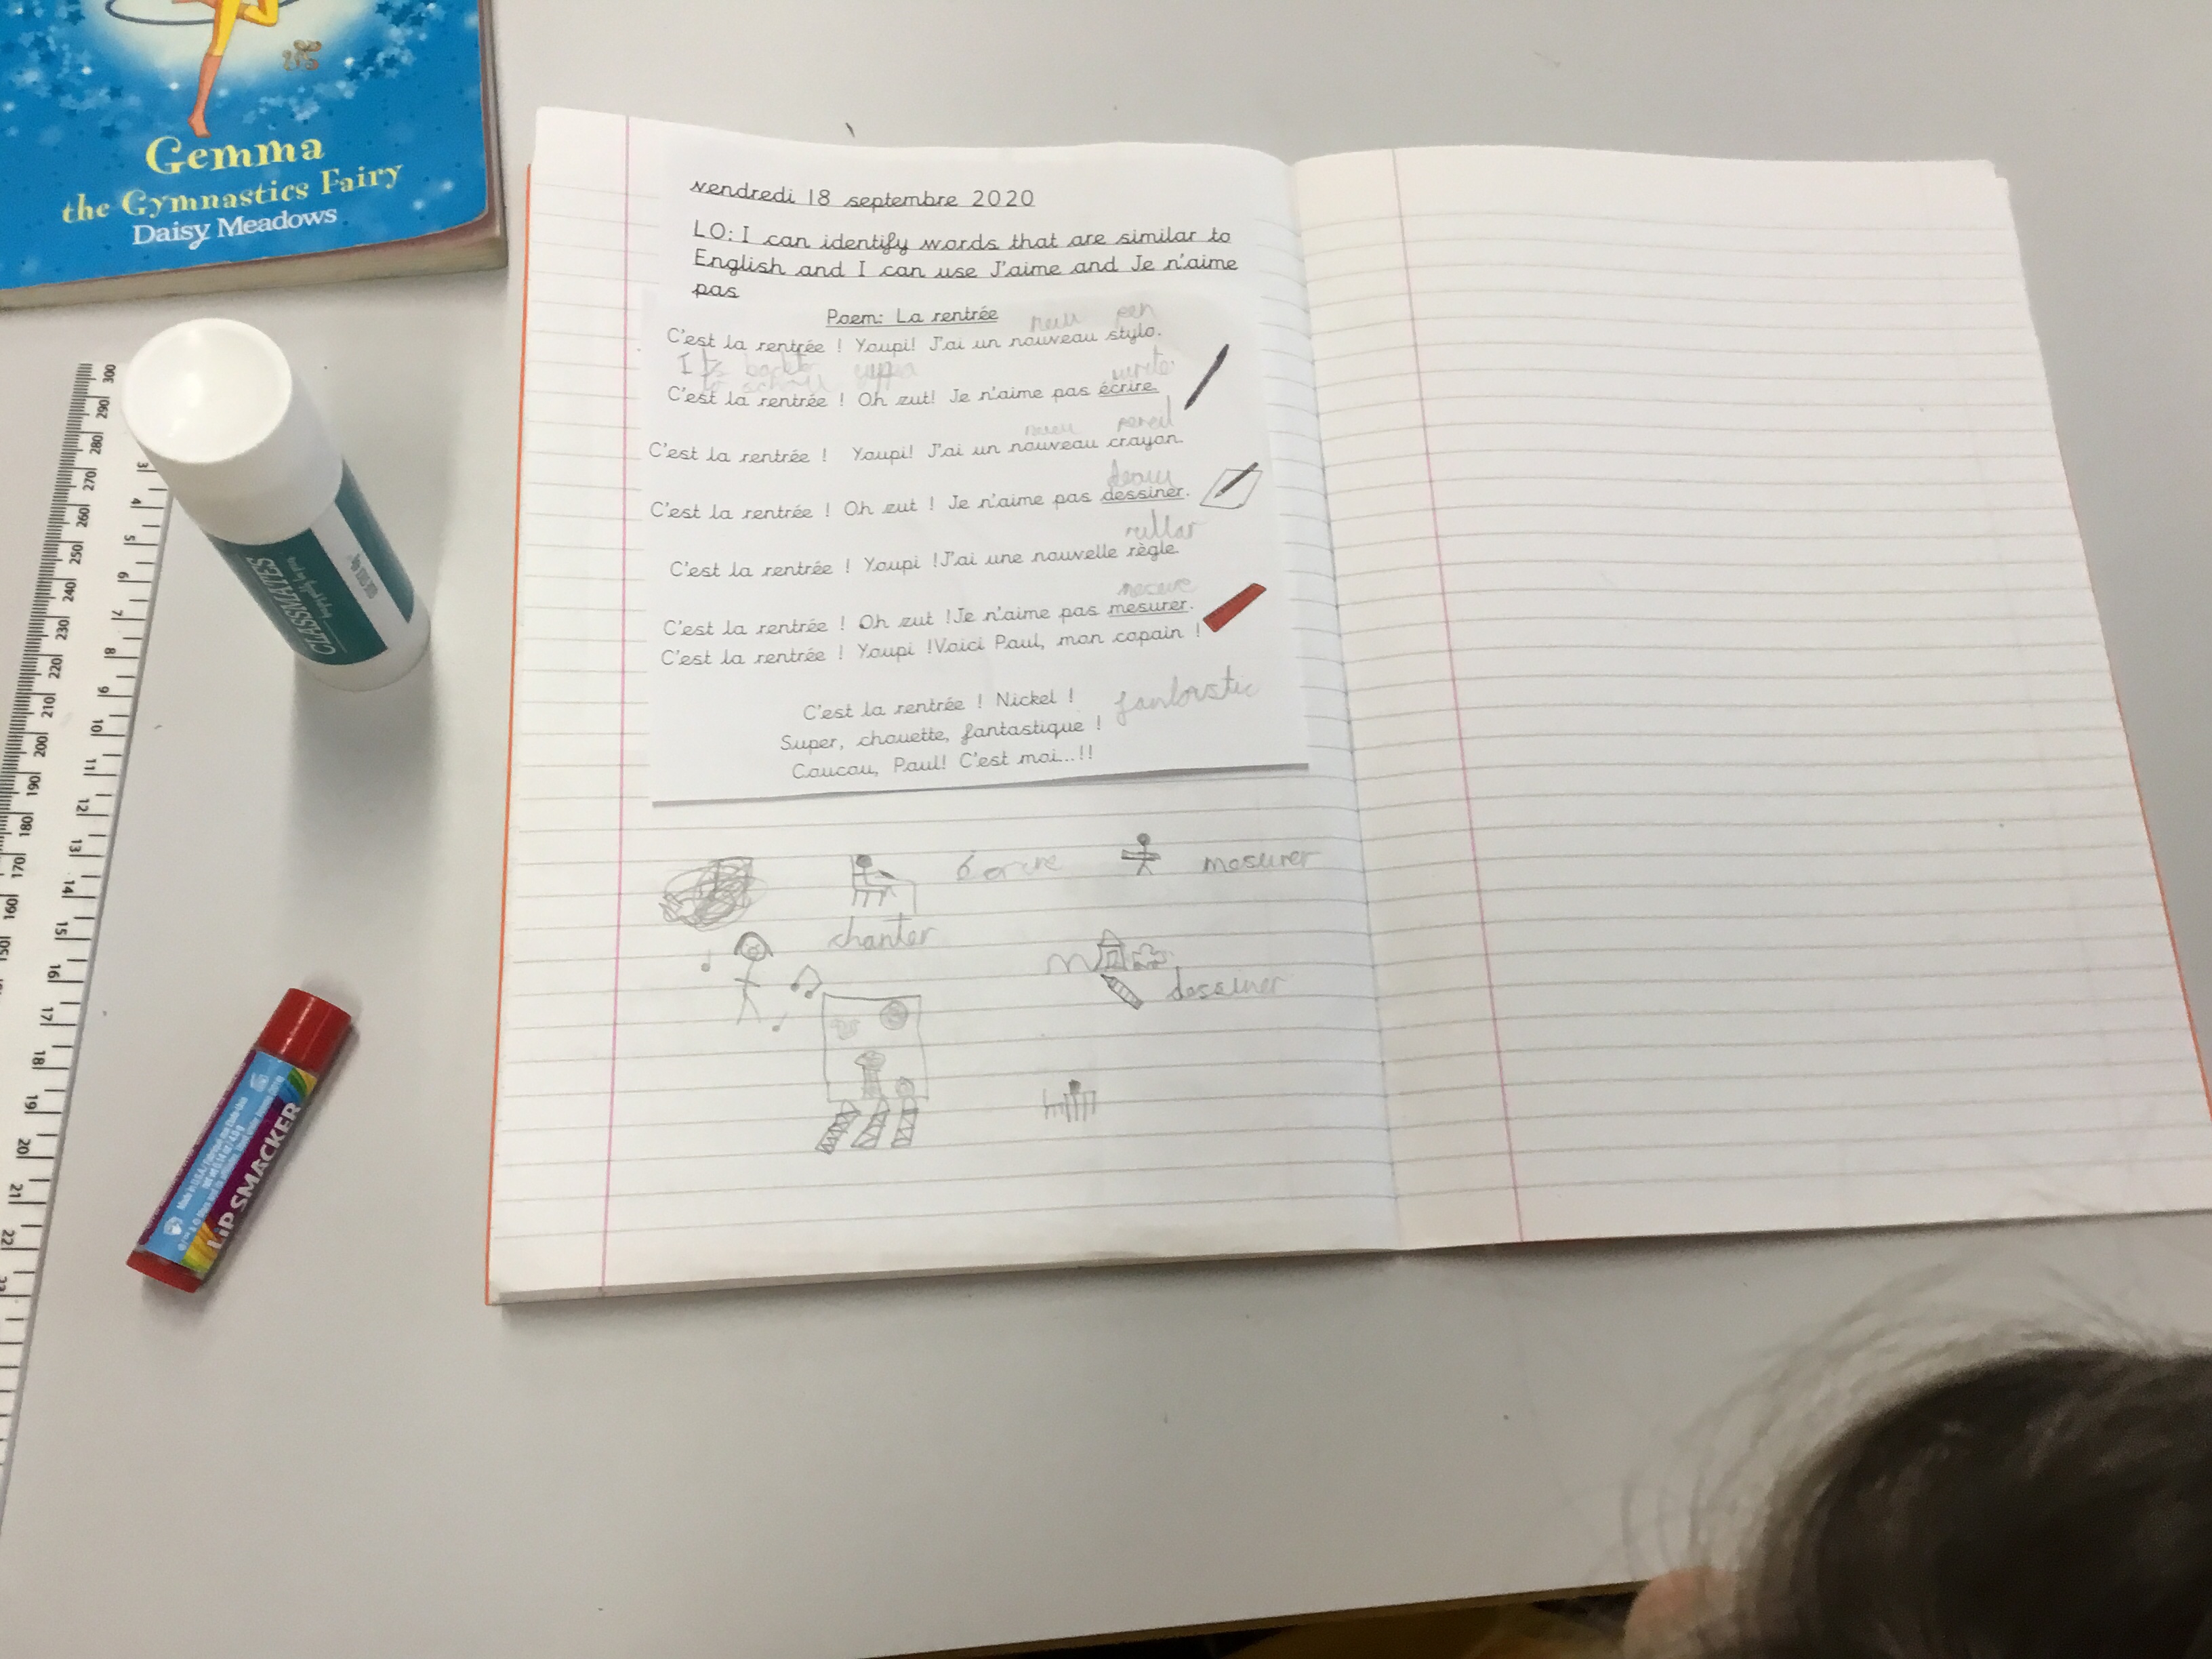 Gemma
the Gymnastics Fairy
Daisy Meadows
vendredi 18 septembre 2020
LO: I can identify words that are similar to
English and I can use J'aime and Je n'aime
pas
Poem: La rentrée
new pen
C'est la rentrée ! Youpi! J'ai un nouveau stylo.
Its back to
to school yuppa write
C'est la rentrée ! Oh zut! Je n'aime pas écrire.
new pencil
C'est la rentrée ! Youpi! J'ai un nouveau crayon.
C'est la rentrée ! Oh zut ! Je n'aime pas dessiner.
rullar
C'est la rentrée ! Youpi !J'ai une nouvelle règle.
C'est la rentrée ! Oh zut !Je n'aime pas mesurer.
C'est la rentrée ! Youpi !Voici Paul, mon copain !
C'est la rentrée ! Nickel ! fantastic
Super, chouette, fantastique !
Coucou, Paul! C'est moi...!!
mesurer
chanter
dessiner
CLASSMATES
LiP SMACKER
300
290
280
270
260
250
240
230
220
210
200
190
180
170
160
3
4
5
6
7
8
9
10
11
12
13
14
15
16
17
18
19
20
21
22